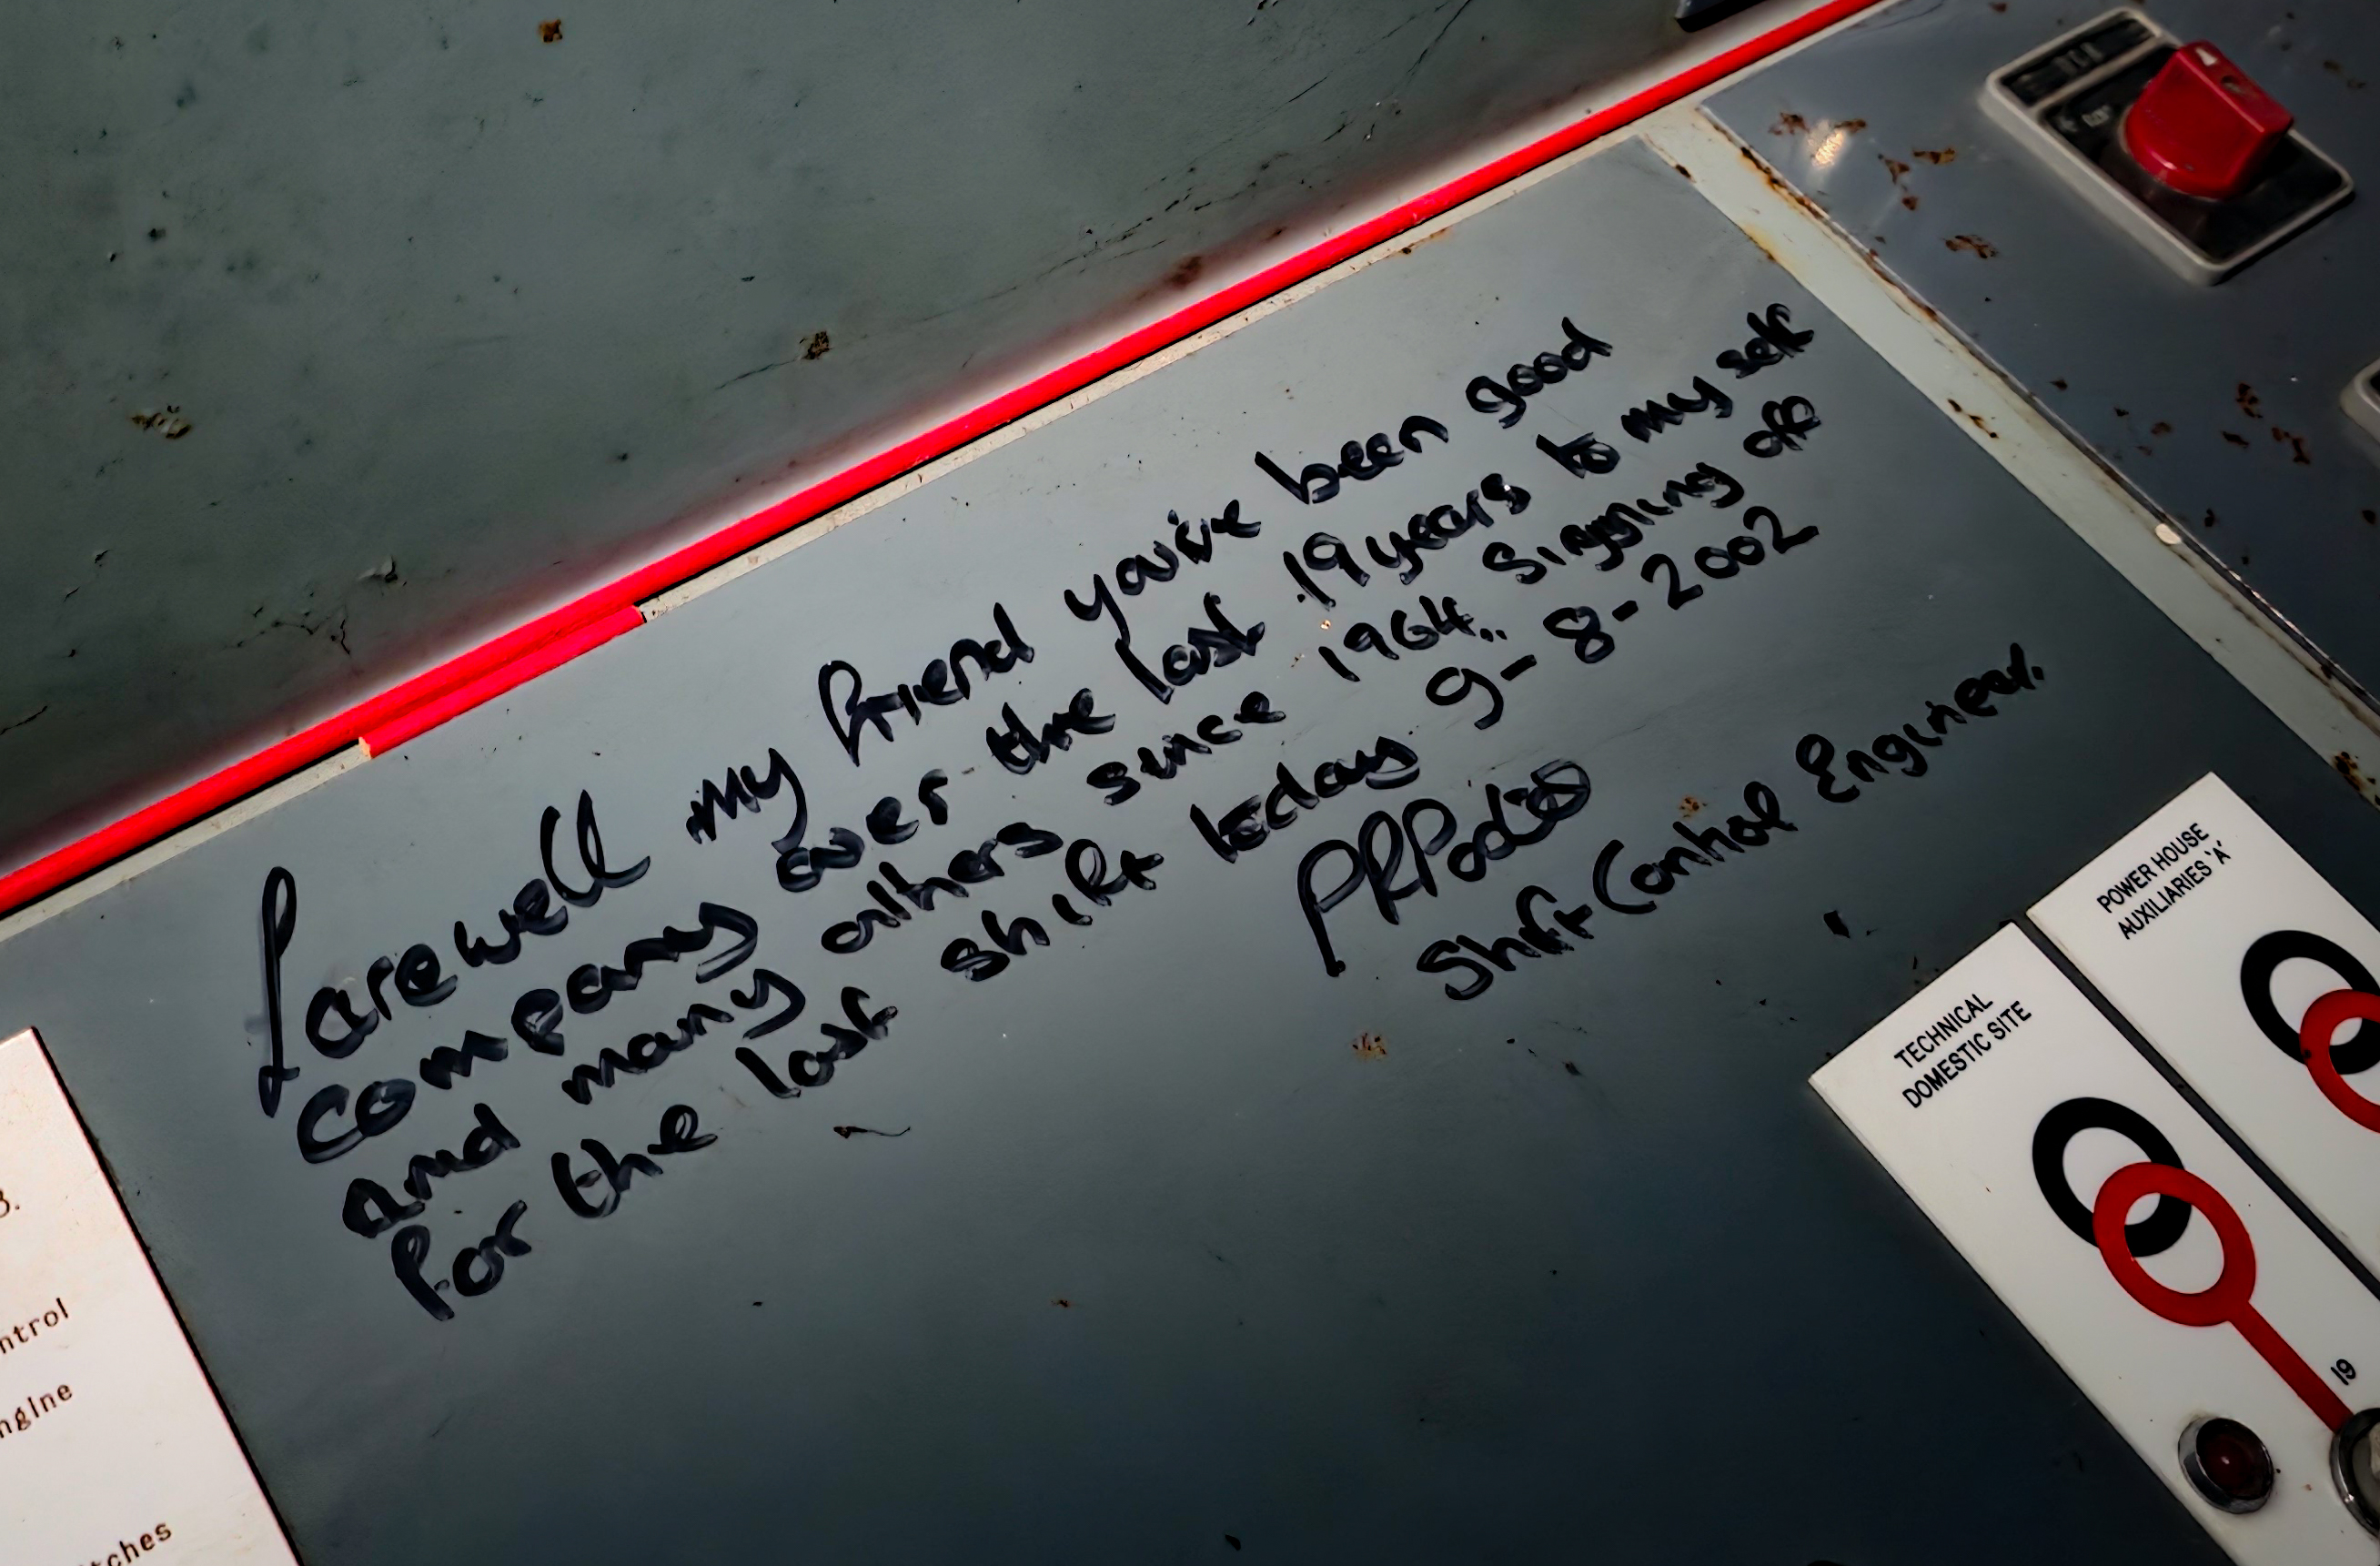 farewell my friend you've been good
company over the last 19 years to my self
and many others since 1964.. Singning off
for the last shift today 9-8-2002
Shift Control Engineer.
POWER HOUSE
AUXILIARIES 'A'
TECHNICAL
DOMESTIC SITE
19
3.
ntrol
ngine
tches